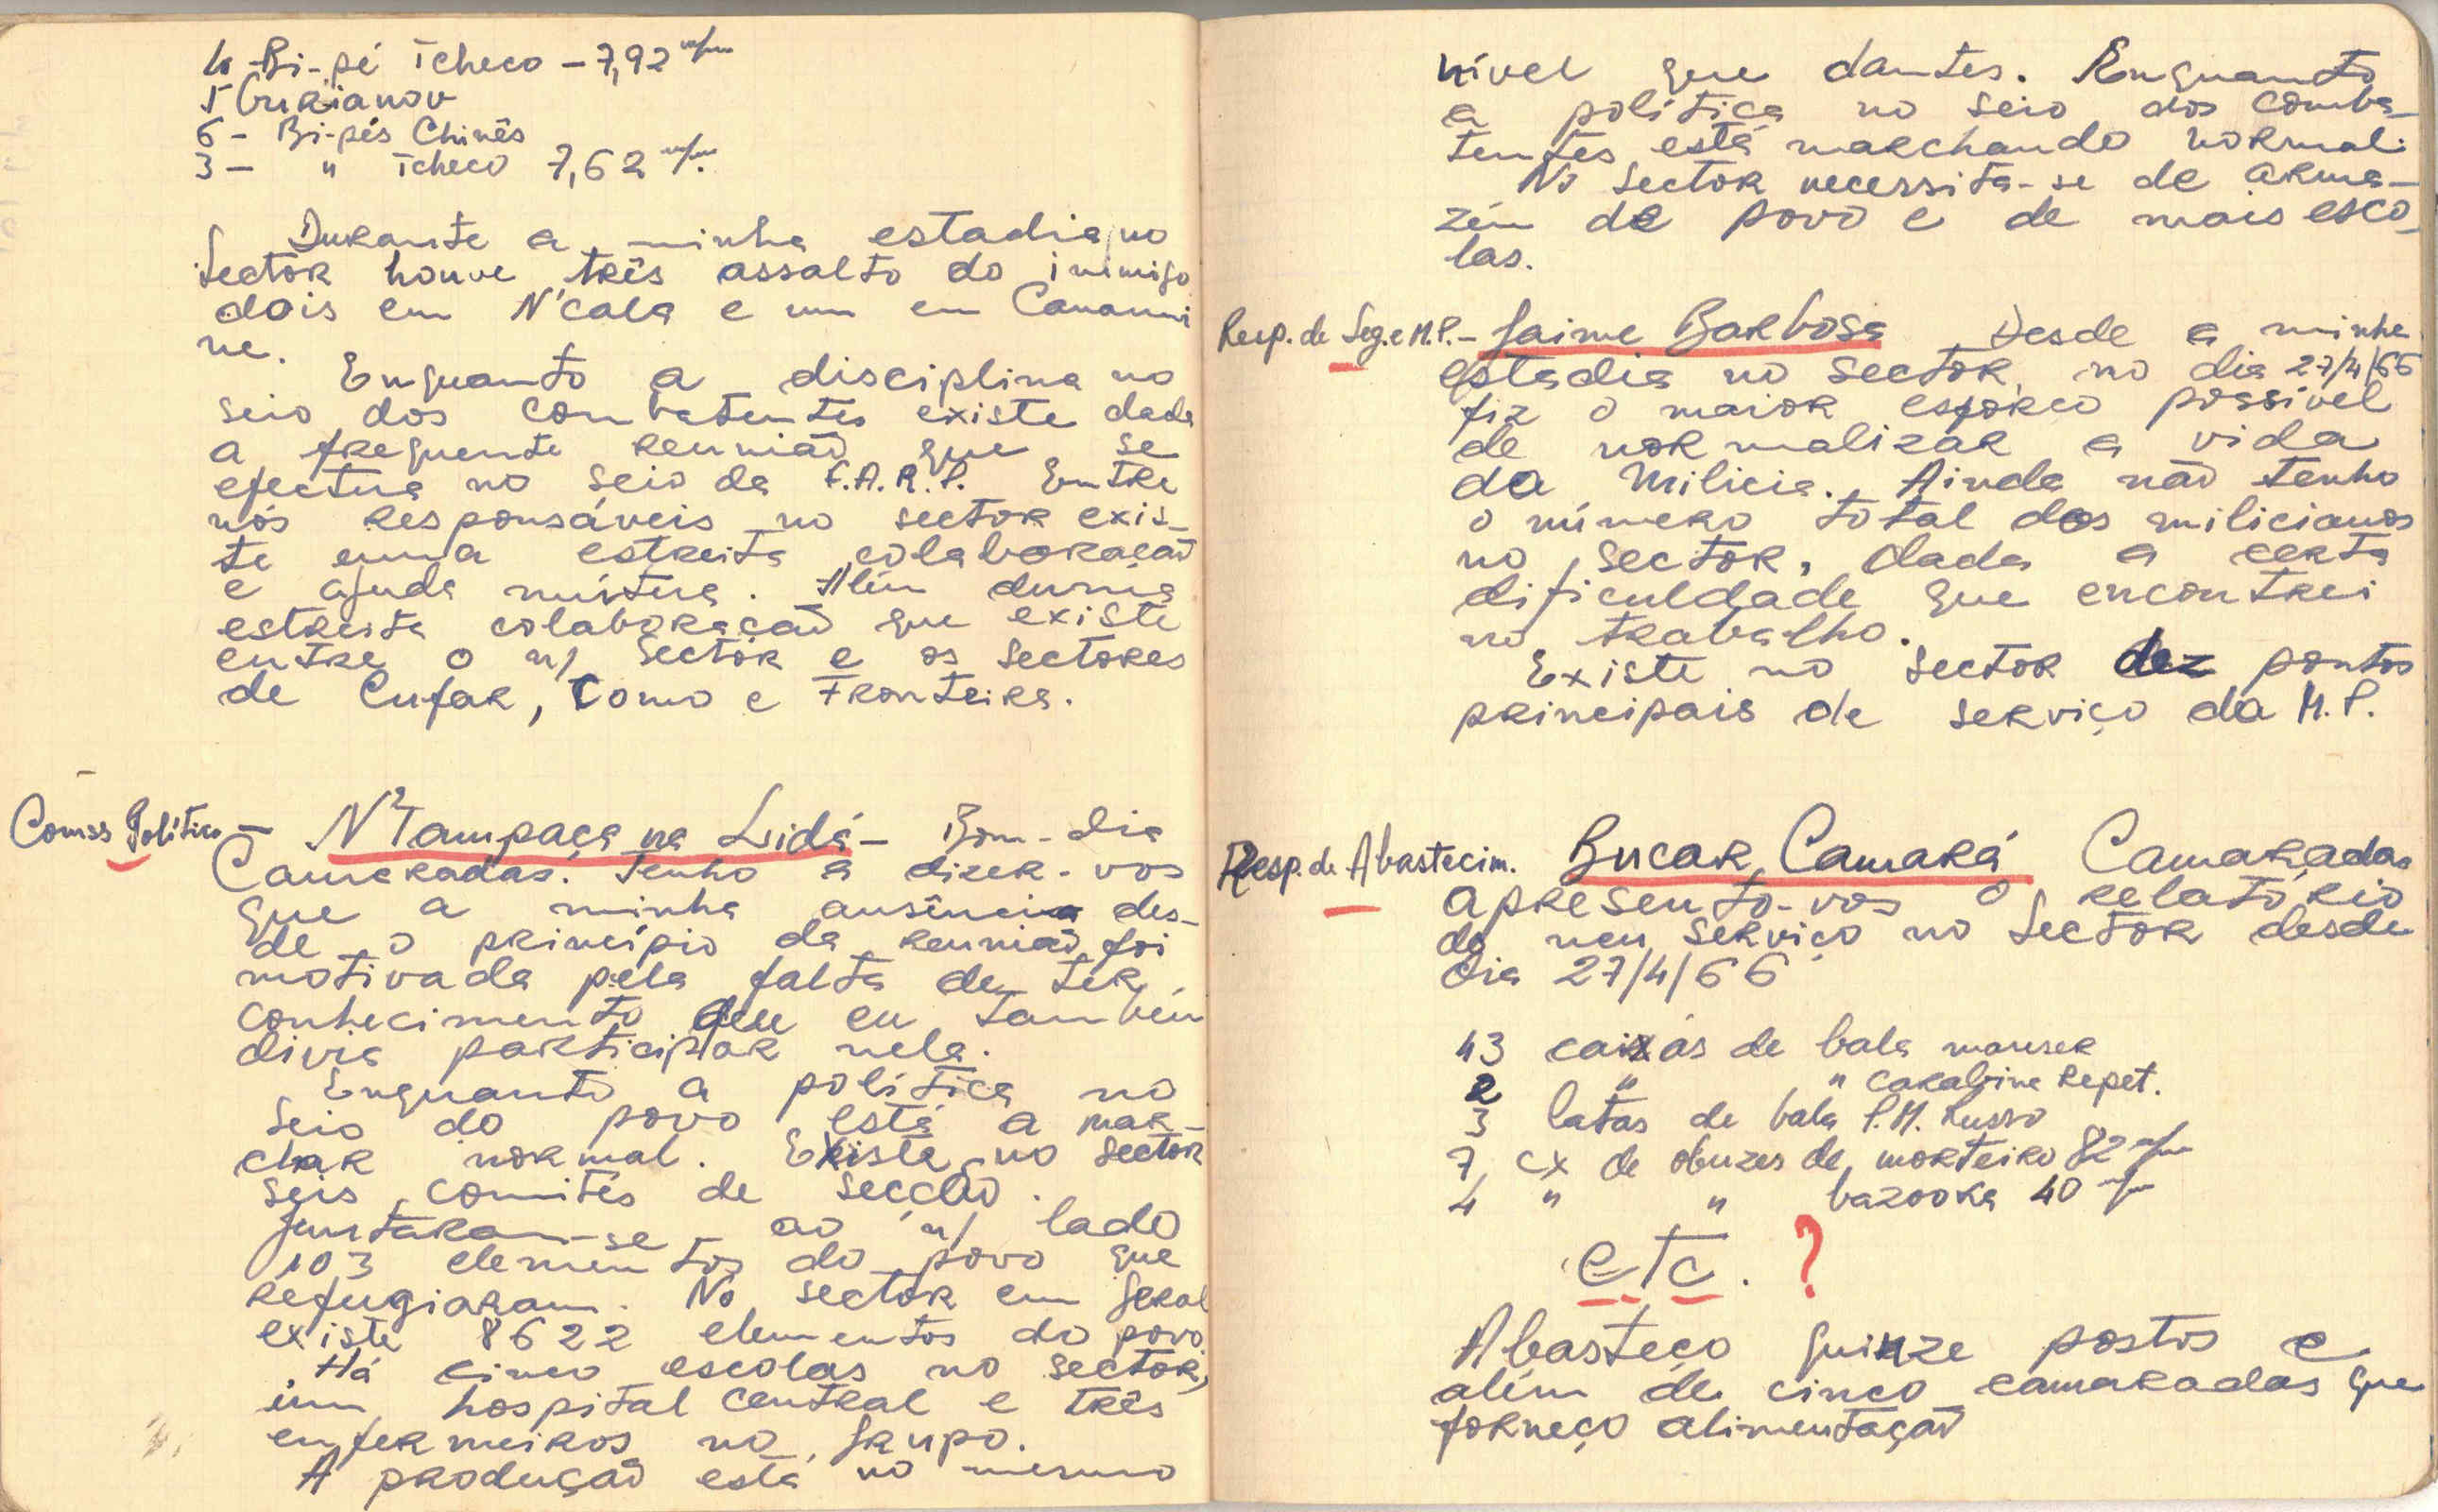 4 - Bi-pé Tcheco - 7,92 m/m
5 Gurianov
6 - Bi-pés Chinês
3 - " Tcheco 7,62 m/m.
Durante a minha estadia no
Sector houve três assalto do inimigo
dois em N'cala e um em Canami
ne.
Enquanto a disciplina no
seio dos combatentes existe dada
a frequente reunião que se
efectua no seio da F.A.R.P. Entre
nós responsáveis no sector exis-
te uma estreita colaboração
e ajuda mútua. Além duma
estreita colaboração que existe
entre o n/ Sector e os Sectores
de Cufar, Como e Fronteira.
Comss Político - N'Tampaça na Lidá - Bom-dia
Camaradas. Tenho a dizer-vos
que a minha ausência des-
de o princípio da reunião foi
motivada pela falta de ter
conhecimento que eu também
divia participar nela.
Enquanto a política no
seio do povo está a mar-
char normal. Existe no Sector
seis comités de secção.
Juntaram-se ao n/ lado
103 elementos do povo que
refugiaram. No sector em geral
existe 8622 elementos do povo.
Há cinco escolas no sector,
um hospital central e três
enfermeiros no grupo.
A produção está no mesmo
nível que dantes. Enquanto
a política no seio dos comba-
tentes está marchando normal.
No Sector necessita-se de arma-
zém de povo e de mais esco-
las.
Resp. de Seg. e M.P. - Jaime Barbosa Desde a minha
estadia no Sector, no dia 27/4/66
fiz o maior esforço possível
de normalizar a vida
da Milicia. Ainda não tenho
o número total dos milicianos
no sector, dada a certa
dificuldade que encontrei
no trabalho.
Existe no Sector dez pontos
principais de serviço da M.P.
Resp. de Abastecim. Bucar Camará Camaradas
apresento-vos o relatório
do meu serviço no Sector desde
dia 27/4/66
43 caixas de bala mauser
2 " " carabina Repet.
3 latas de bala P.M. Russo
7 cx de obuzes de morteiro 82 m/m
4 " " bazooka 40 m/m
etc. ?
Abasteço quinze postos e
além de cinco camaradas que
forneço alimentação